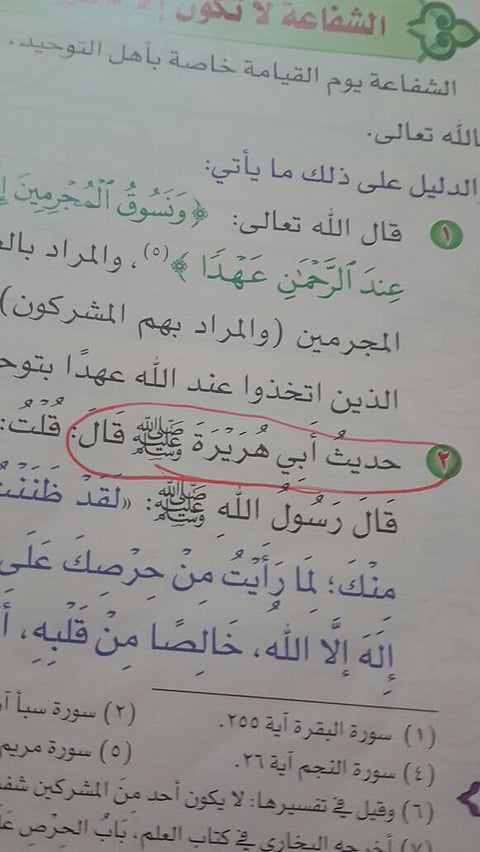 الشفاعة لا تكون إلا
الشفاعة يوم القيامة خاصة بأهل التوحيد.
الله تعالى.
الدليل على ذلك ما يأتي:
١ قال الله تعالى: ﴿وَنَسُوقُ الْمُجْرِمِينَ
عِندَ الرَّحْمَٰنِ عَهْدًا﴾(٥)، والمراد
المجرمين (والمراد بهم المشركون)
الذين اتخذوا عند الله عهدًا
٢ حديثُ أَبِي هُرَيْرَةَ ﷺ قَالَ: قُلْتُ:
قَالَ رَسُولُ اللهِ ﷺ: «لَقَدْ ظَنَنْتُ
مِنْكَ؛ لِمَا رَأَيْتُ مِنْ حِرْصِكَ عَلَى
إِلَهَ إِلَّا اللهُ، خَالِصًا مِنْ قَلْبِهِ،
(١) سورة البقرة آية ٢٥٥.
(٢) سورة سبأ
(٤) سورة النجم آية ٢٦.
(٥) سورة مريم
(٦) وقيل في تفسيرها: لا يكون أحد من المشركين
(٧) أخرجه البخاري في كتاب العلم، بَابُ الحِرْصِ